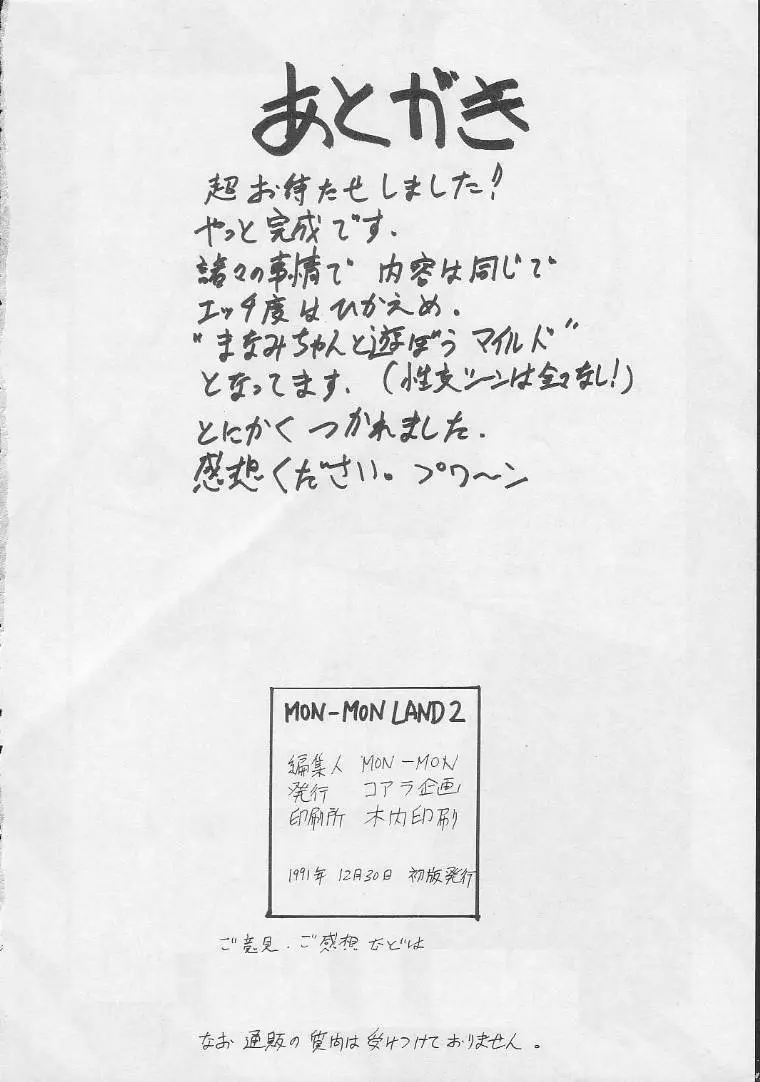 あとがき
超お待たせしました!
やっと完成です.
諸々の事情で 内容は同じで
エッチ度はひかえめ.
"まなみちゃんと遊ぼう マイルド"
となってます. (性交シーンは全々なし!)
とにかく つかれました.
感想ください。プワ〜ン
MON-MON LAND 2
編集人 MON-MON
発行 コアラ企画
印刷所 木内印刷
1991年 12月30日 初版発行
ご意見.ご感想などは
なお 通販の質問は受けつけておりません。